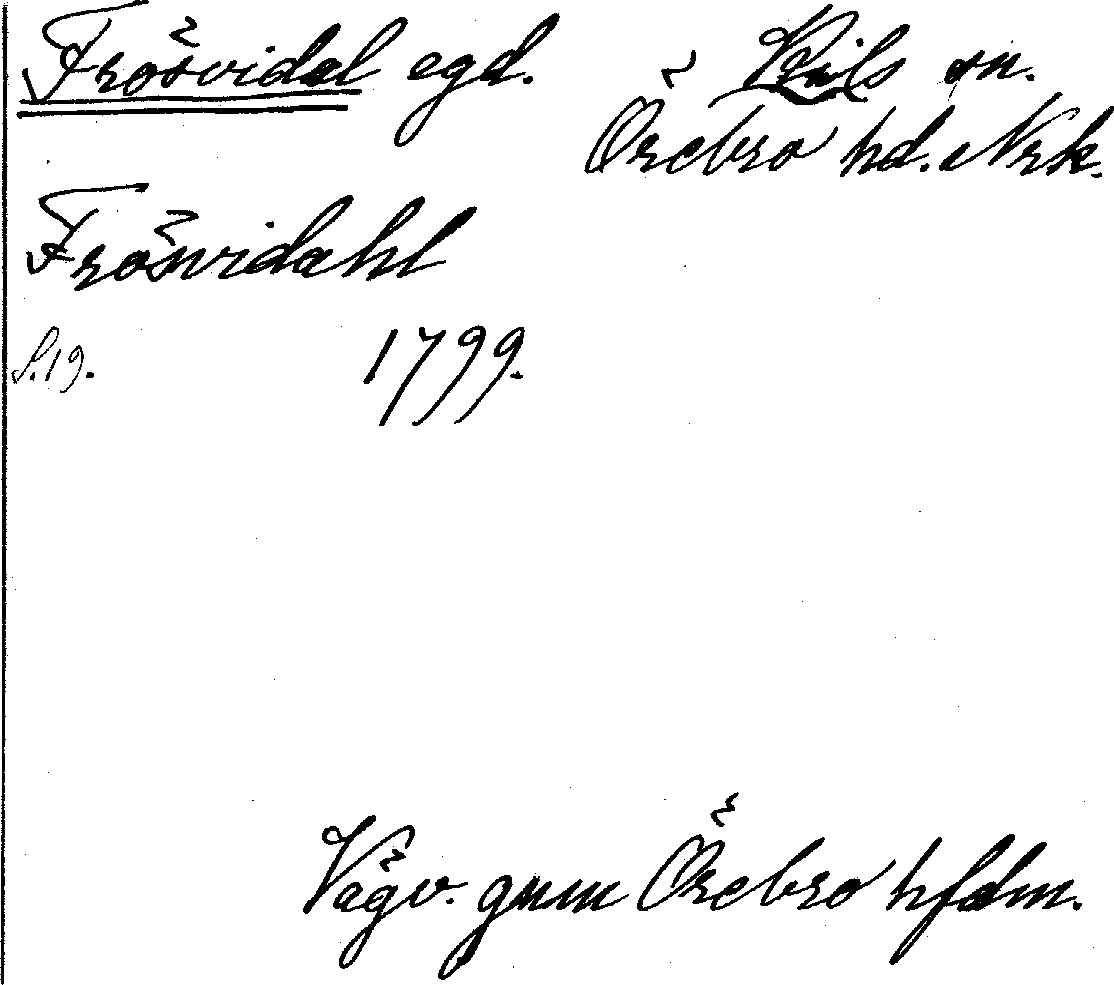 Frösvidal egd. Kils sn.
Örebro hd. Nrk.
Frösvidahl
S. 19. 1799.
Vägv. gnm Örebro hfdm.